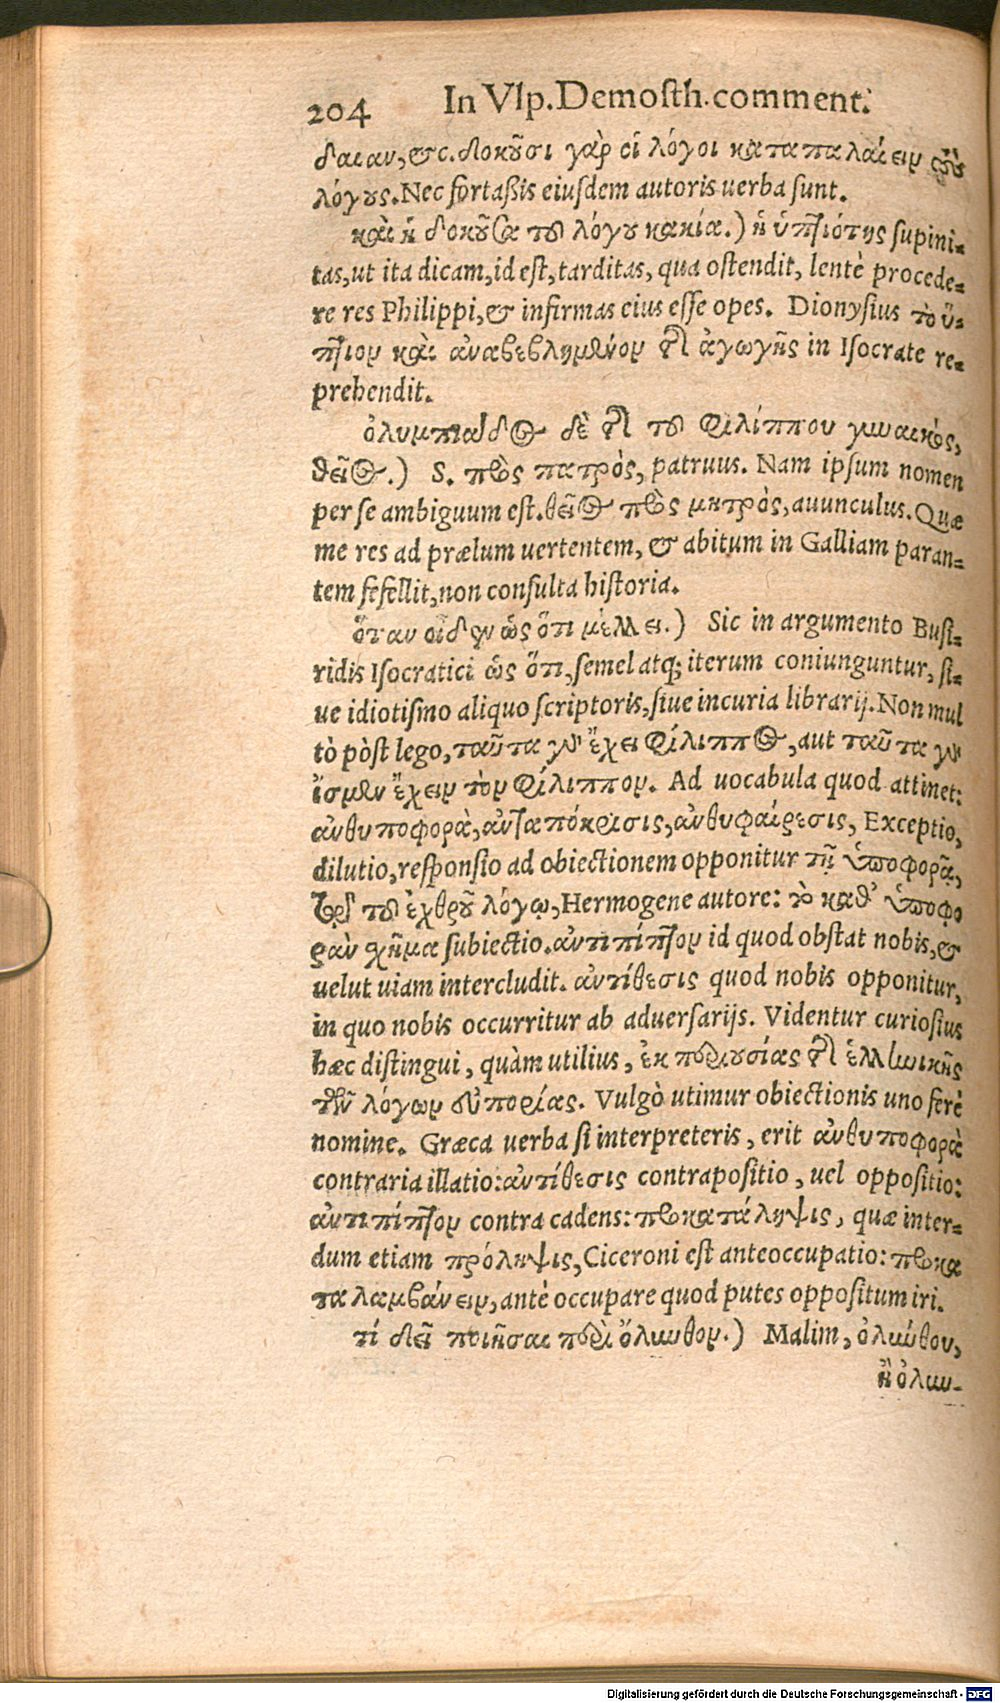 204 In Vlp. Demosth. comment.
δαιαν, &c. δοκοῦσι γὰρ οἱ λόγοι καταπαλαίειν τοὺς
λόγους. Nec fortaßis eiusdem autoris uerba sunt.
καὶ ἡ δοκοῦσα τοῦ λόγου κακία.) ἡ ὑπτιότης supini-
tas, ut ita dicam, id est, tarditas, qua ostendit, lentè procede-
re res Philippi, & infirmas eius esse opes. Dionysius τὸ ὕ-
πτιον καὶ ἀναβεβλημένον τῆς ἀγωγῆς in Isocrate re-
prehendit.
ὀλυμπιάδος δὲ τῆς τοῦ Φιλίππου γυναικός,
θεῖος.) S. πρὸς πατρὸς, patruus. Nam ipsum nomen
per se ambiguum est. θεῖος πρὸς μητρὸς, auunculus. Quæ
me res ad prælum uertentem, & abitum in Galliam paran-
tem fefellit, non consulta historia.
ὅταν οἶδεν ὡς ὅτι μέλλει.) Sic in argumento Busi-
ridis Isocratici ὡς ὅτι, semel atq; iterum coniunguntur, si-
ue idiotismo aliquo scriptoris, siue incuria librarij. Non mul
tò pòst lego, ταῦτα γὰρ ἔχει Φίλιππος, aut ταῦτα γὰρ
ἴσμεν ἔχειν τὸν Φίλιππον. Ad uocabula quod attinet:
ἀνθυποφορὰ, ἀνταπόκρισις, ἀνθυφαίρεσις, Exceptio,
dilutio, responsio ad obiectionem opponitur τῇ ὑποφορᾷ,
τῷ τοῦ ἐχθροῦ λόγῳ, Hermogene autore: τὸ καθ' ὑποφο
ρὰν σχῆμα subiectio. ἀντιπίπτον id quod obstat nobis, &
uelut uiam intercludit. ἀντίθεσις quod nobis opponitur,
in quo nobis occurritur ab aduersarijs. Videntur curiosius
hæc distingui, quàm utilius, ἐκ περιουσίας τῆς ἑλληνικῆς
τῶν λόγων εὐπορίας. Vulgò utimur obiectionis uno ferè
nomine. Græca uerba si interpreteris, erit ἀνθυποφορὰ
contraria illatio: ἀντίθεσις contrapositio, uel oppositio:
ἀντιπίπτον contra cadens: προκατάληψις, quæ inter-
dum etiam πρόληψις, Ciceroni est anteoccupatio: προκα
ταλαμβάνειν, antè occupare quod putes oppositum iri.
τί δεῖ ποιῆσαι περὶ ὄλυνθον.) Malim, ὀλύνθου,
ἢ ὀλυν-
Digitalisierung gefördert durch die Deutsche Forschungsgemeinschaft - DFG